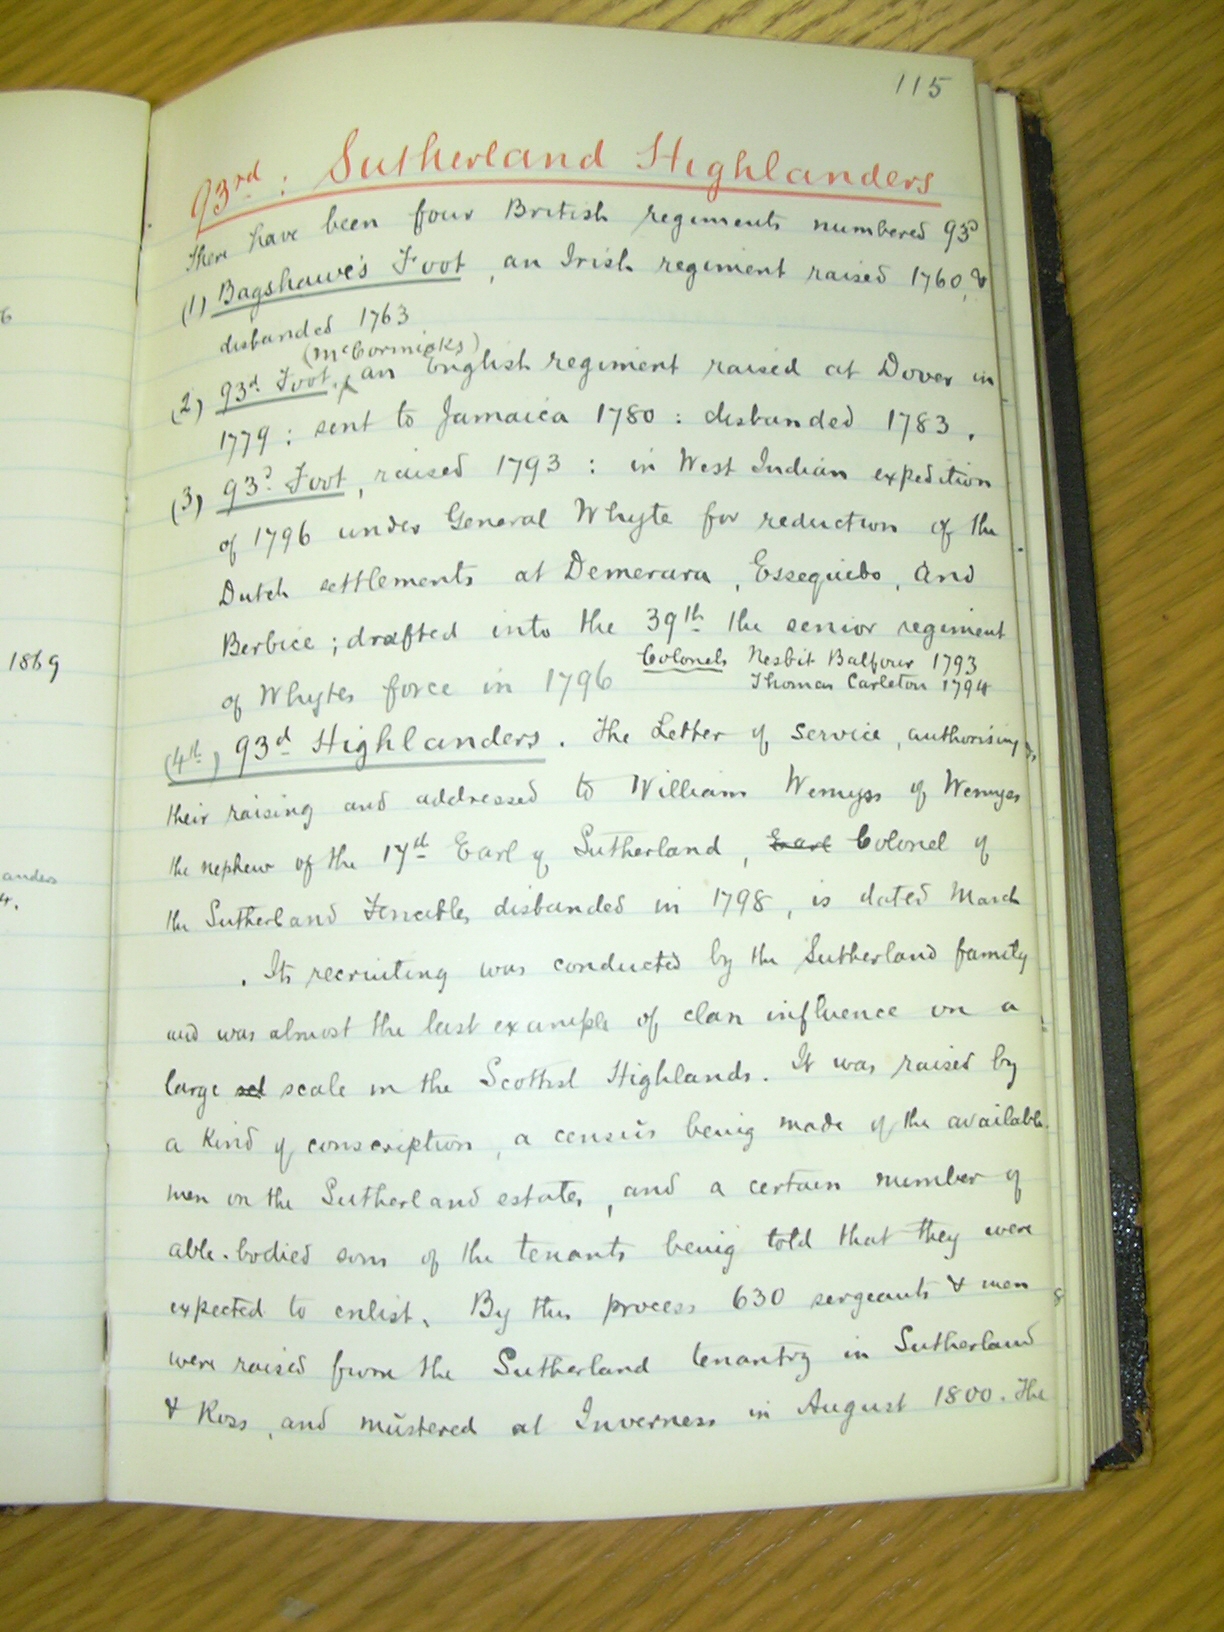 115
93rd: Sutherland Highlanders
There have been four British regiments numbered 93d
(1) Bagshawe's Foot, an Irish regiment raised 1760, &
disbanded 1763
(McCormicks)
(2) 93d Foot, an English regiment raised at Dover in
1779; sent to Jamaica 1780: disbanded 1783.
(3) 93d Foot, raised 1793: in West Indian expedition
of 1796 under General Whyte for reduction of the
Dutch settlements at Demerara, Essequibo, and
Berbice; drafted into the 39th the senior regiment
of Whytes force in 1796
Colonels Nesbit Balfour 1793
Thomas Carleton 1794
(4th) 93d Highlanders. The Letter of Service, authorising
their raising and addressed to William Wemyss of Wemyss
the nephew of the 17th Earl of Sutherland, Earl Colonel of
the Sutherland Fencibles disbanded in 1798, is dated March
. Its recruiting was conducted by the Sutherland family
and was almost the last example of clan influence on a
large scl scale in the Scottish Highlands. It was raised by
a kind of conscription, a census being made of the available
men on the Sutherland estates, and a certain number of
able-bodied sons of the tenants being told that they were
expected to enlist. By this process 630 sergeants & men
were raised from the Sutherland tenantry in Sutherland
& Ross, and mustered at Inverness in August 1800. The
1869
anders
4.
6